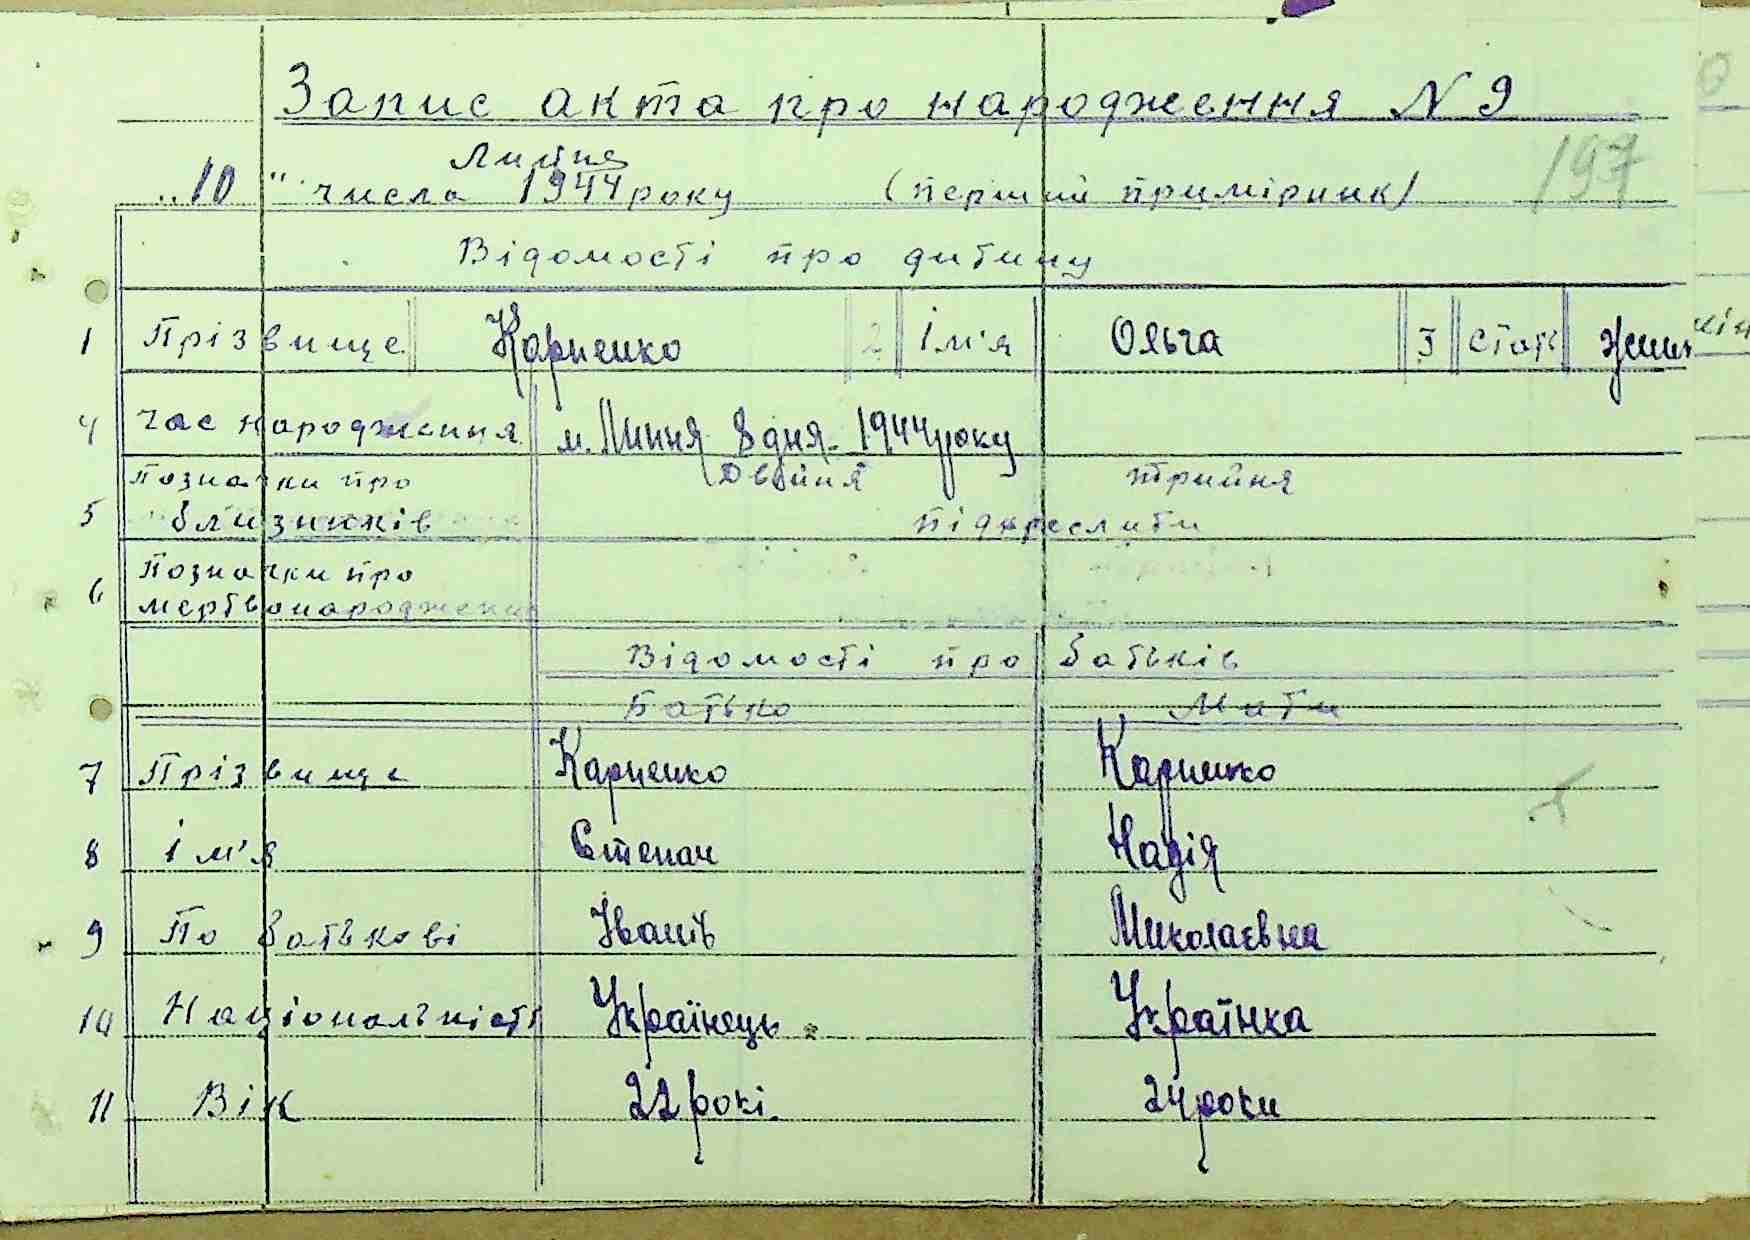 Запис акта про народження N 9
Липня
„10" числа 1944 року (перший примірник)
197
Відомості про дитину
1 Прізвище Карпенко 2 Ім'я Ольга 3 Стать жін
4 Час народження м. Липня 8 дня 1944 року
5 Позначки про Двійня трийня
близнюків підкреслити
6 Позначки про
мертвонародження
Відомості про батьків
Батько Мати
7 Прізвище Карпенко Карпенко
8 Ім'я Степан Надія
9 По батькові Іванів Миколаєвна
10 Національність Українець Українка
11 Вік 22 рокі. 24 роки